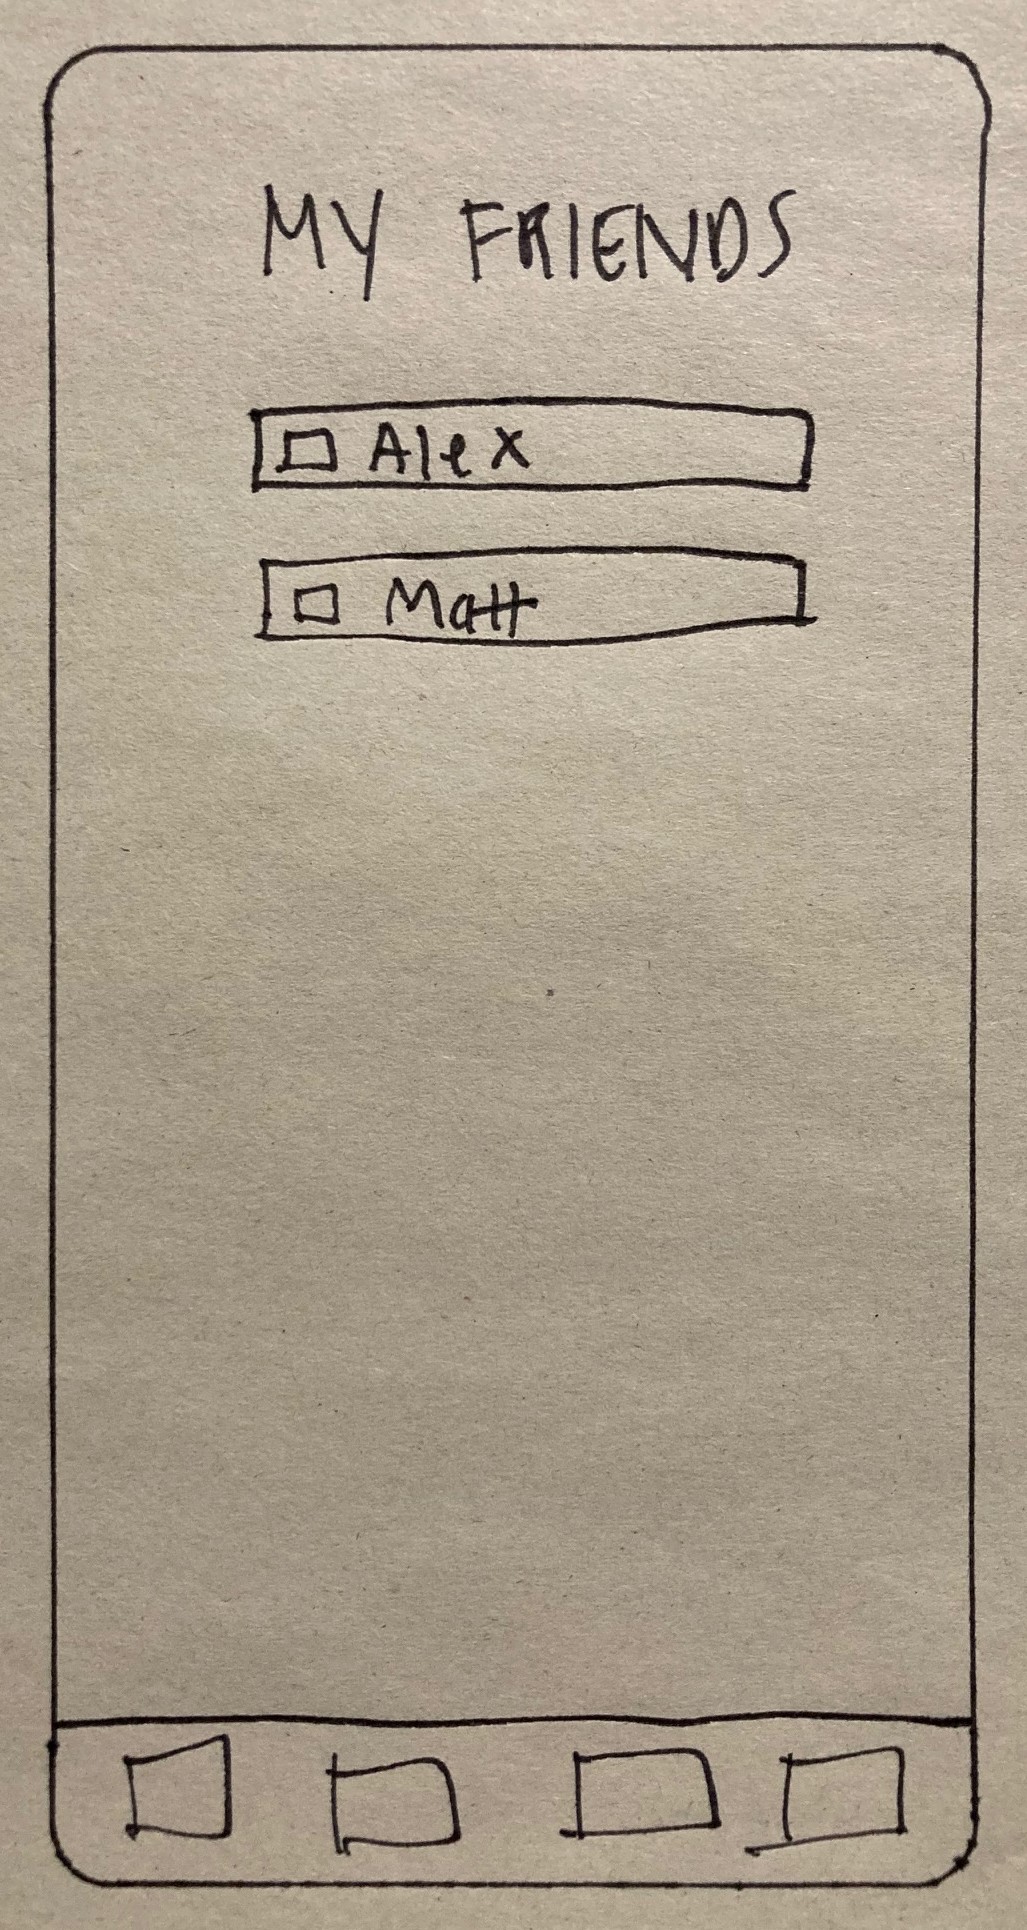 MY FRIENDS
Alex
Matt